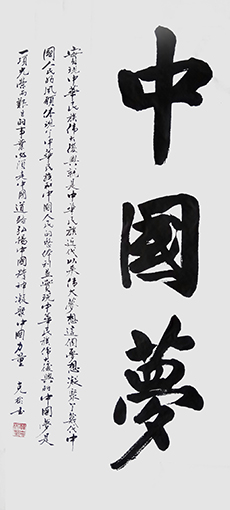 中國夢
實現中華民族偉大復興就是中華民族近代以來偉大夢想這個夢想凝聚了幾代中
國人民的夙願体現了中華民族和中國人民的整体利益實現中華民族偉大復興的中國夢是
一項光榮而艱巨的事業必須走中國道路弘揚中國精神凝聚中國力量